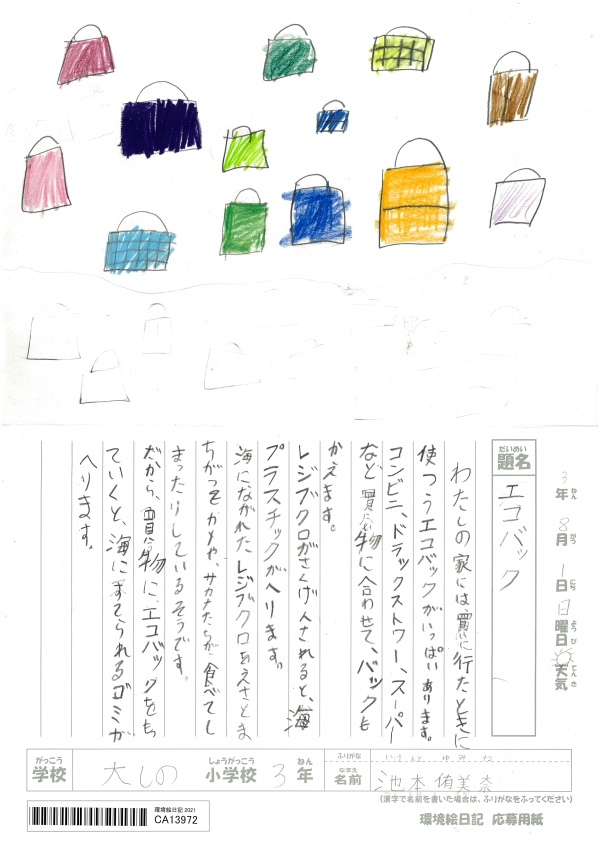 3年 8月 1日 日曜日 天気
ねん がつ にち ようび てんき
だいめい
題名
エコバック
わたしの家には、買いに行たときに
使つうエコバックがいっぱいあります。
コンビニ、ドラックストワー、スーパー
など買い物に合わせて、バックも
かえます。
レジブクロがさくげんされると、海
プラスチックがへります。
海にながれたレジブクロをえさとま
ちがってカメや、サカナたちが食べてし
まったりしているそうです。
だから、買い物に、エコバックをもっ
ていくと、海にすてられるゴミが
へります。
がっこう しょうがっこう ねん
学校 大しの 小学校 3年
ふりがな
なまえ
名前 池本侑美奈
(漢字で名前を書いた場合は、ふりがなをふってください)
環境絵日記 2021
CA13972
環境絵日記 応募用紙